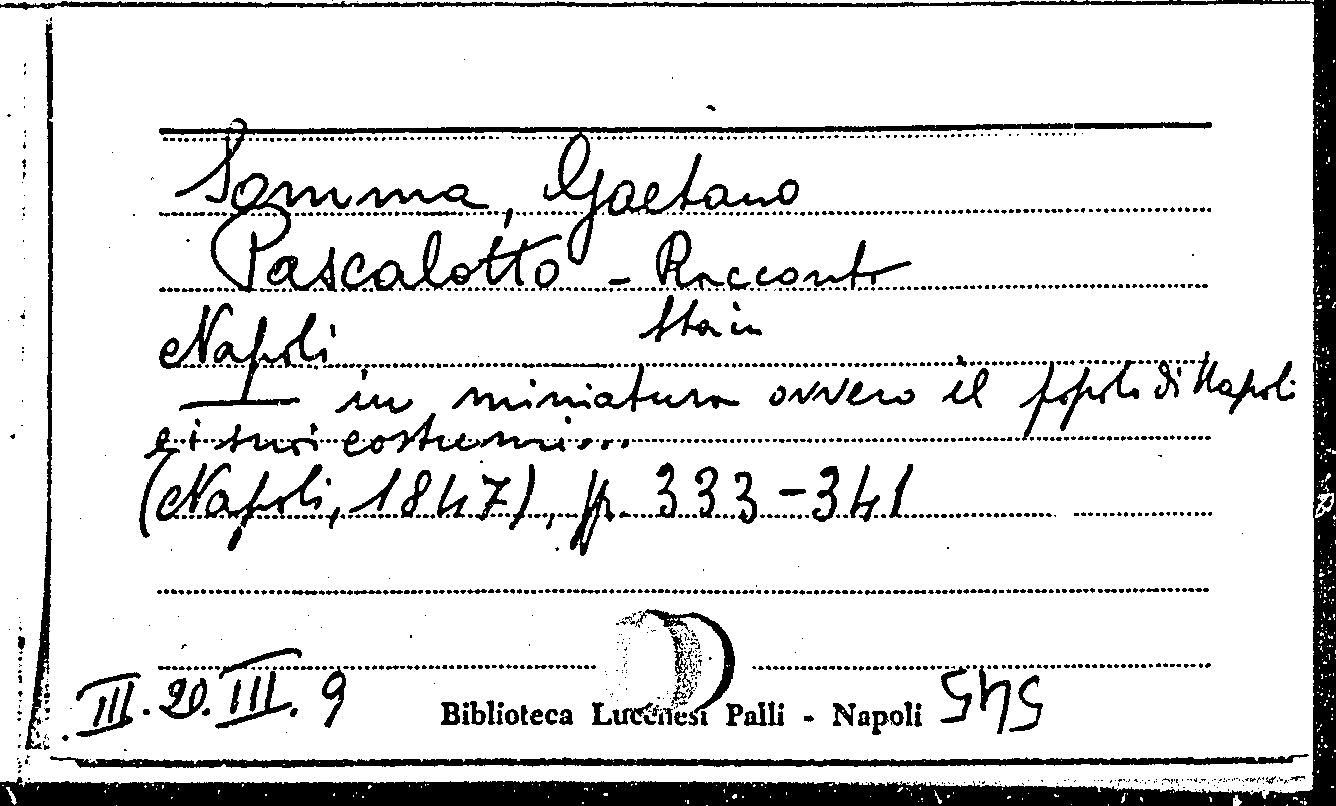 Somma, Gaetano
Pascalotto - Racconto
Sta in
Napoli
in miniatura ovvero il popolo di Napoli
e i suoi costumi...
(Napoli, 1847), pp. 333-341
III. 20. III. 9
Biblioteca Lucchesi Palli - Napoli
545